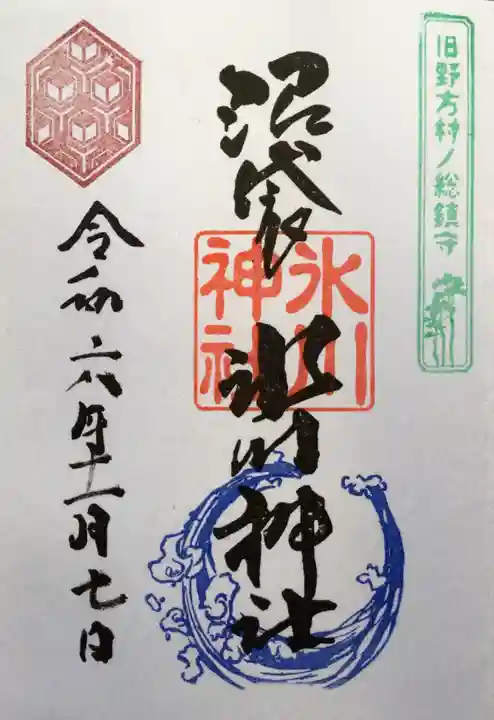 旧野方村ノ総鎮守
沼袋 氷川神社
氷川
神社
令和六年十一月七日